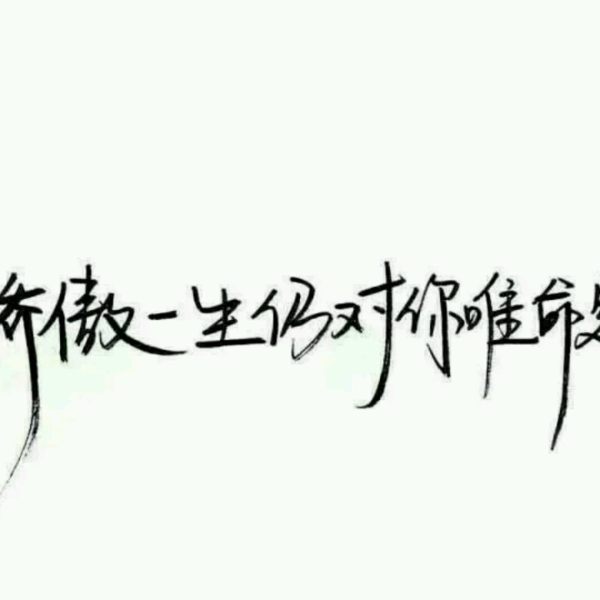 骄傲一生仍对你唯命